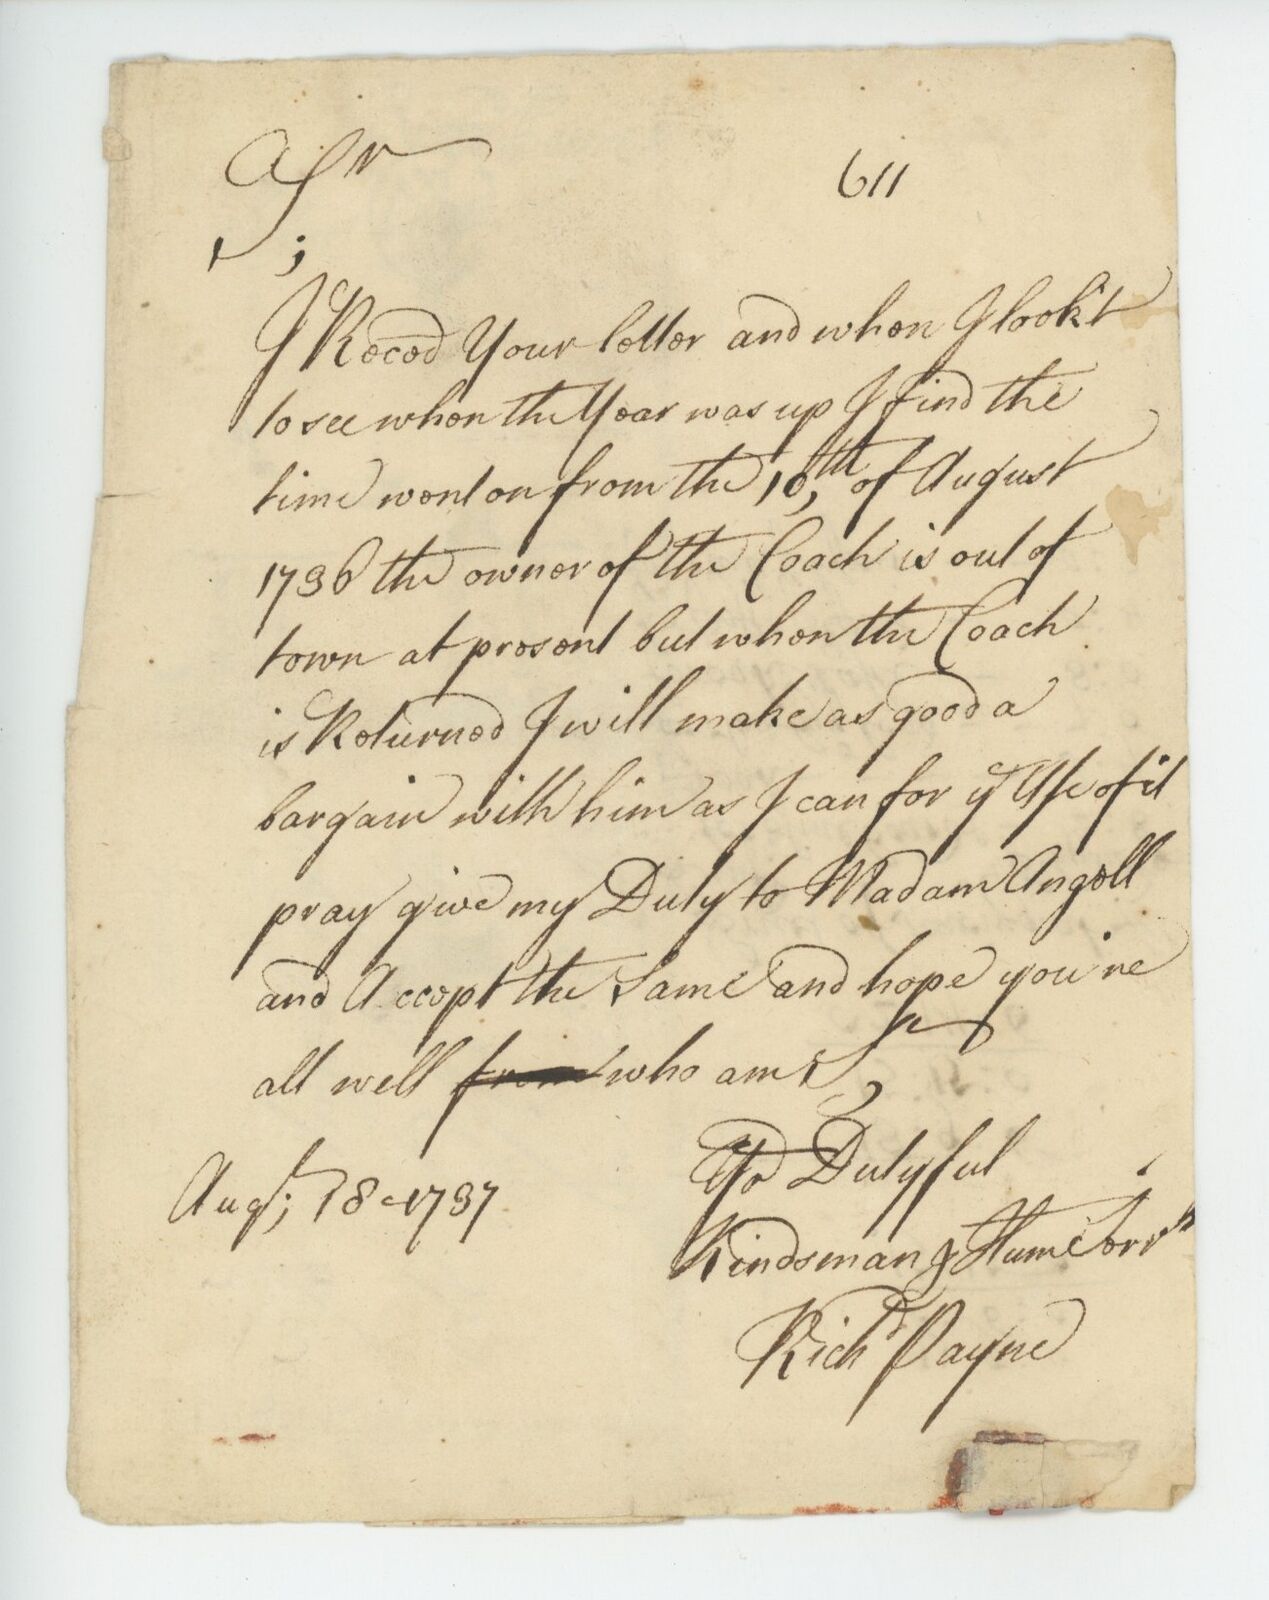 Sr
611
;
I Reced Your letter and when I look't
to see when the Year was up I find the
time went on from the 10,th of August
1736 the owner of the Coach is out of
town at present but when the Coach
is Returned I will make as good a
bargain with him as I can for ye Use of it
pray give my Duty to Madam Angell
and Accept the Same and hope you're
all well from who am Sr,
Yor Dutyful
Augt; 18-1737
Kindsman & Hume Servt
Richd Payne